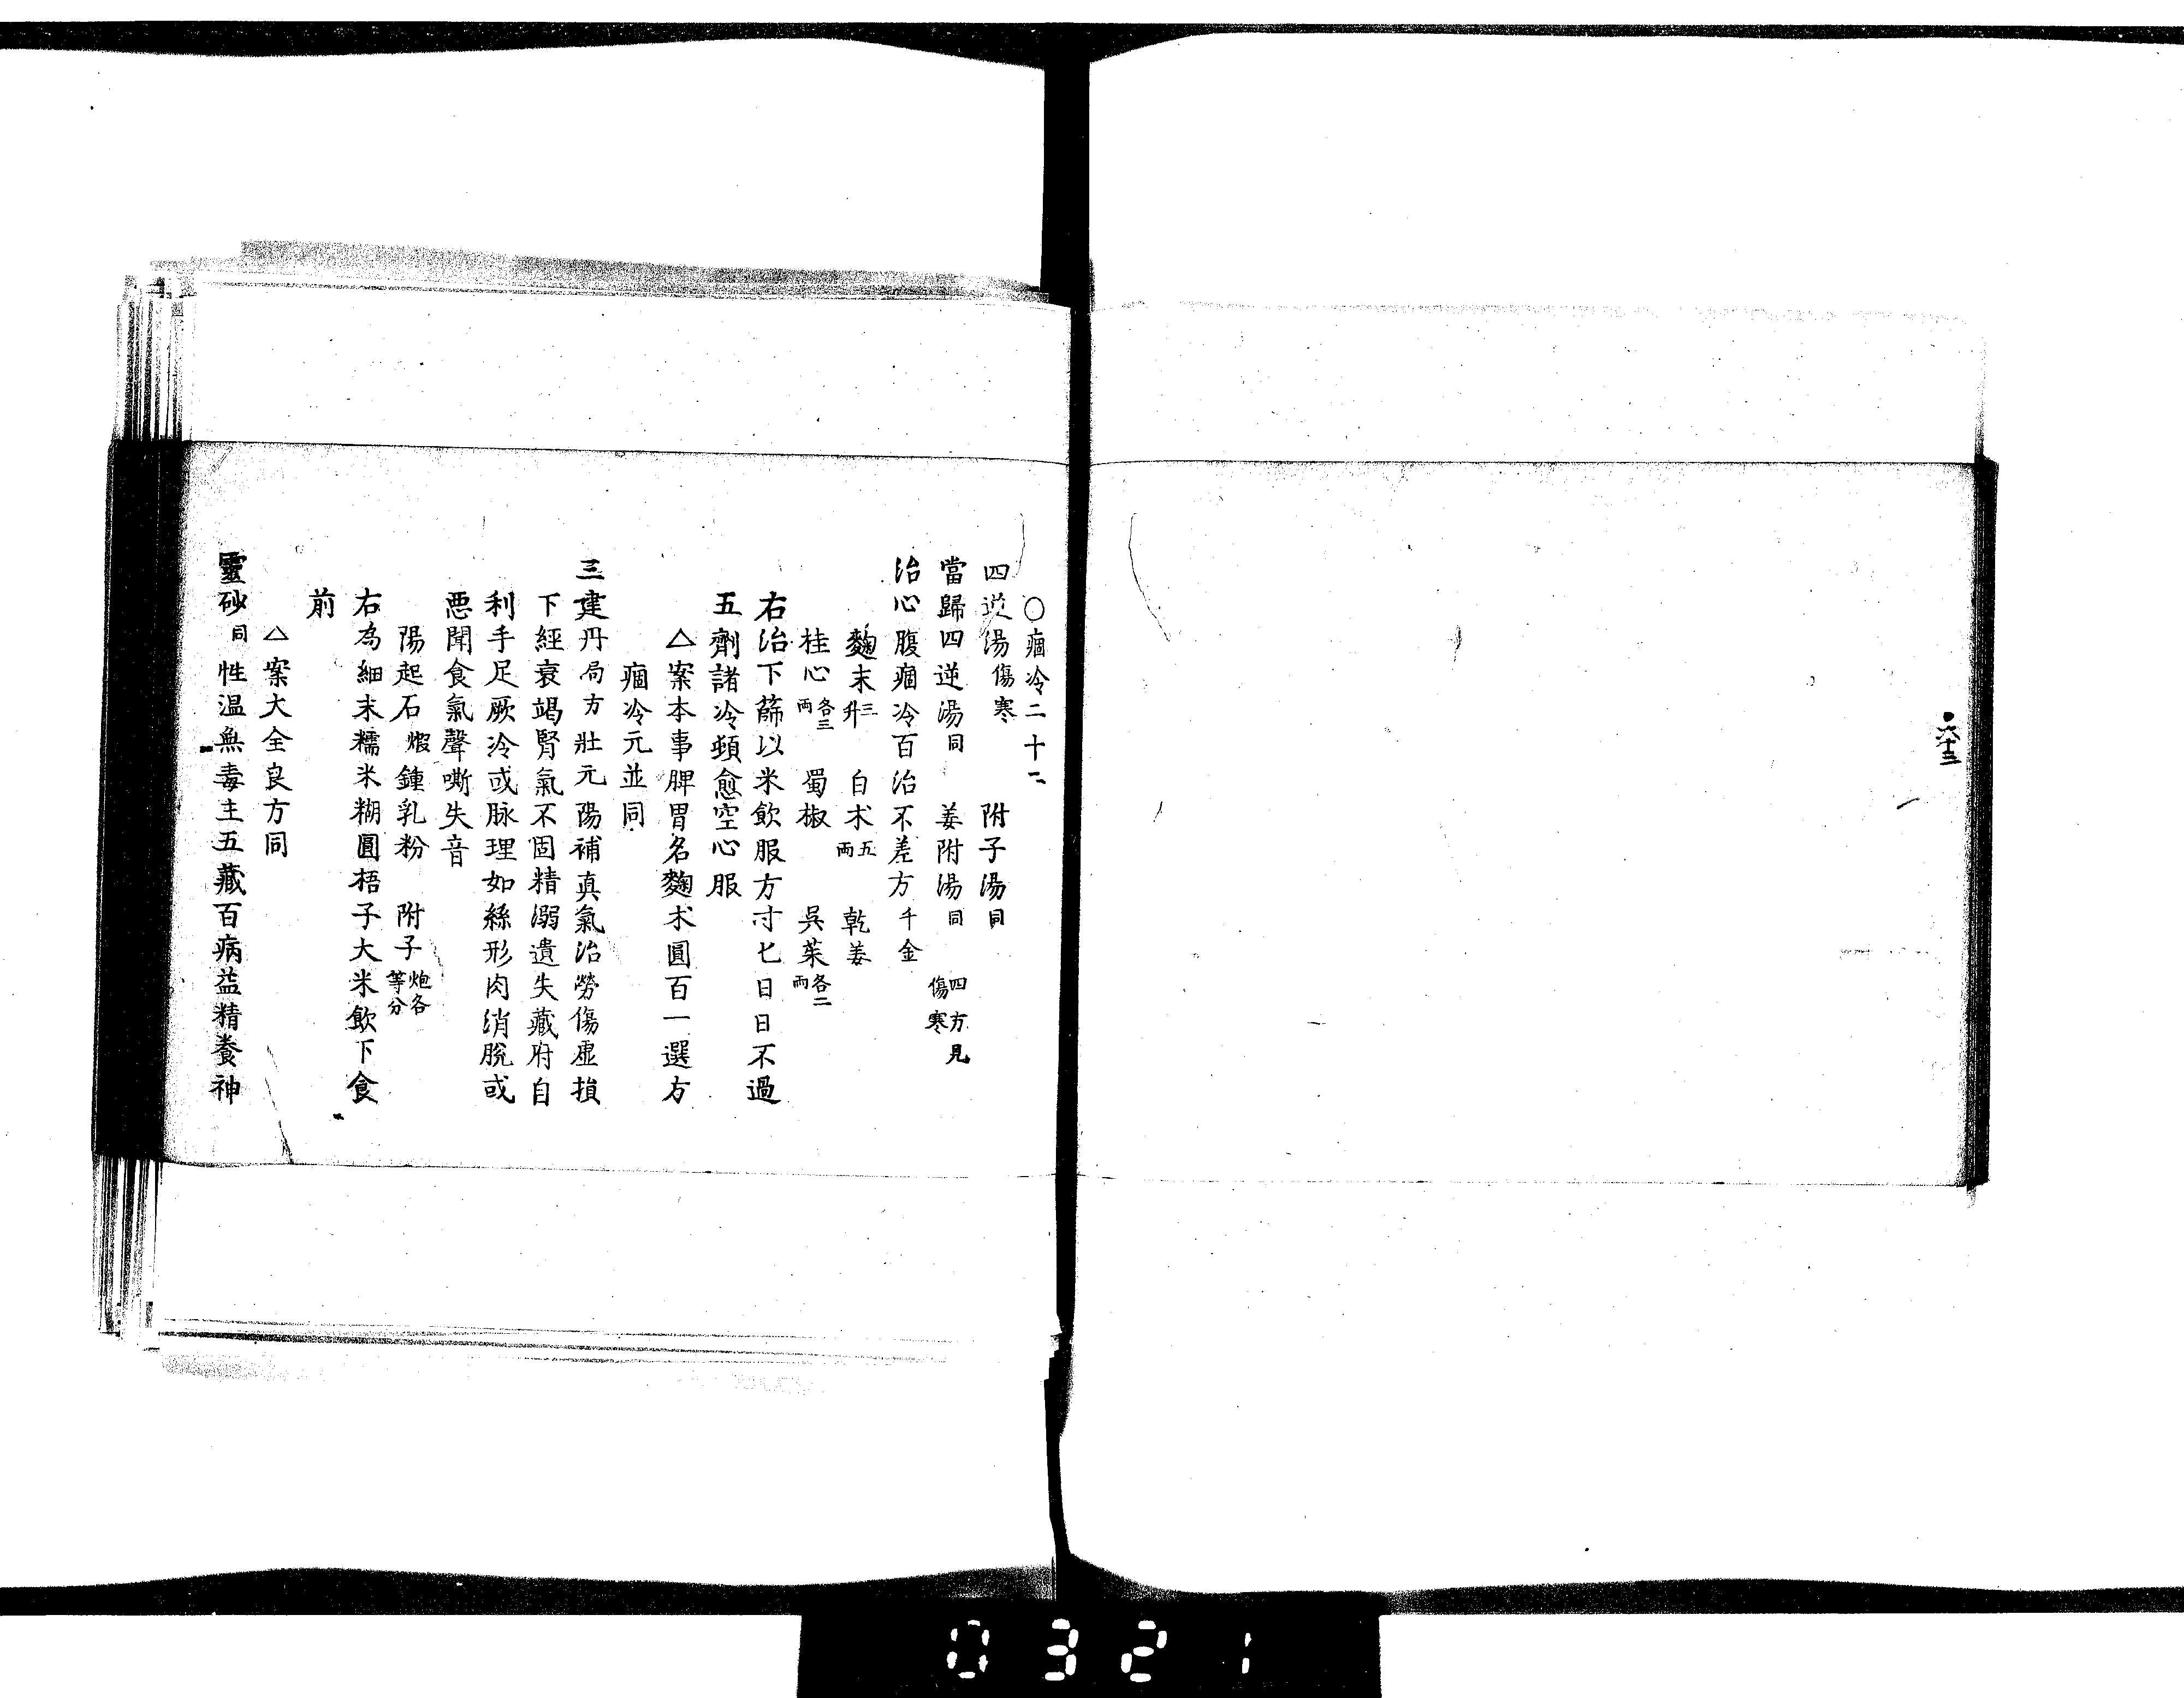 六十三
○痼冷二十二
四逆湯傷寒 附子湯同
當歸四逆湯同 姜附湯同 四方見傷寒
治心腹痼冷百治不差方千金
麴末三升 白朮五両 乾姜
桂心各三両 蜀椒 呉茱各二両
右治下篩以米飲服方寸匕日日不過
五劑諸冷頓愈空心服
△案本事脾胃名麴朮圓百一選方
痼冷元並同
三建丹局方壯元陽補真氣治勞傷虛損
下經衰竭腎氣不固精溺遺失藏府自
利手足厥冷或脉理如絲形肉消脫或
悪聞食氣聲嘶失音
陽起石煆 鍾乳粉 附子炮各等分
右為細末糯米糊圓梧子大米飲下食
前
△案大全良方同
靈砂同性温無毒主五藏百病益精養神
0321